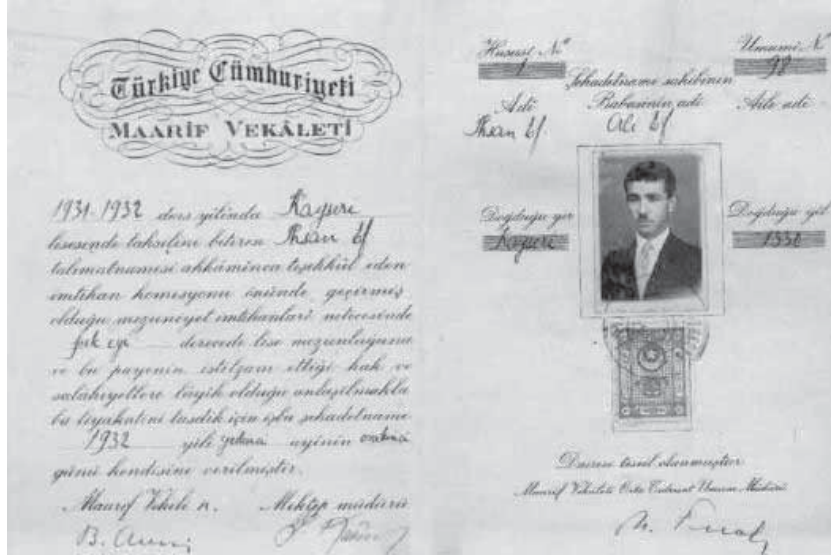 Türkiye Cümhuriyeti
MAARİF VEKÂLETİ
1931-1932 ders yilinda Kayseri
lisesinde tahsilini bitiren İhsan Ef
talimatnamesi ahkâmınca teşekkül eden
imtihan komisyonu önünde geçirmiş
olduğu mezuniyet imtihanlari neticesinde
pek eyi derecede lise mezunluğuna
ve bu payenin istilzam ettiği hak ve
salâhiyetlere lâyik olduğu anlaşilmakla
bu liyakatini tasdik için işbu şehadetname
1932 yili ayinin
günü kendisine verilmiştir.
Maarif Vekili n. Mektep müdürü
Hususî No Umumî No
1 98
Şehadetname sahibinin
Adi Babasinin adi Aile adi
İhsan Ef. Ali Ef
Doğduğu yer Doğduğu yil
Kayseri
Dairesi tescil olunmuştur
Maarif Vekâleti Orta Tedrisat Umum Müdürü